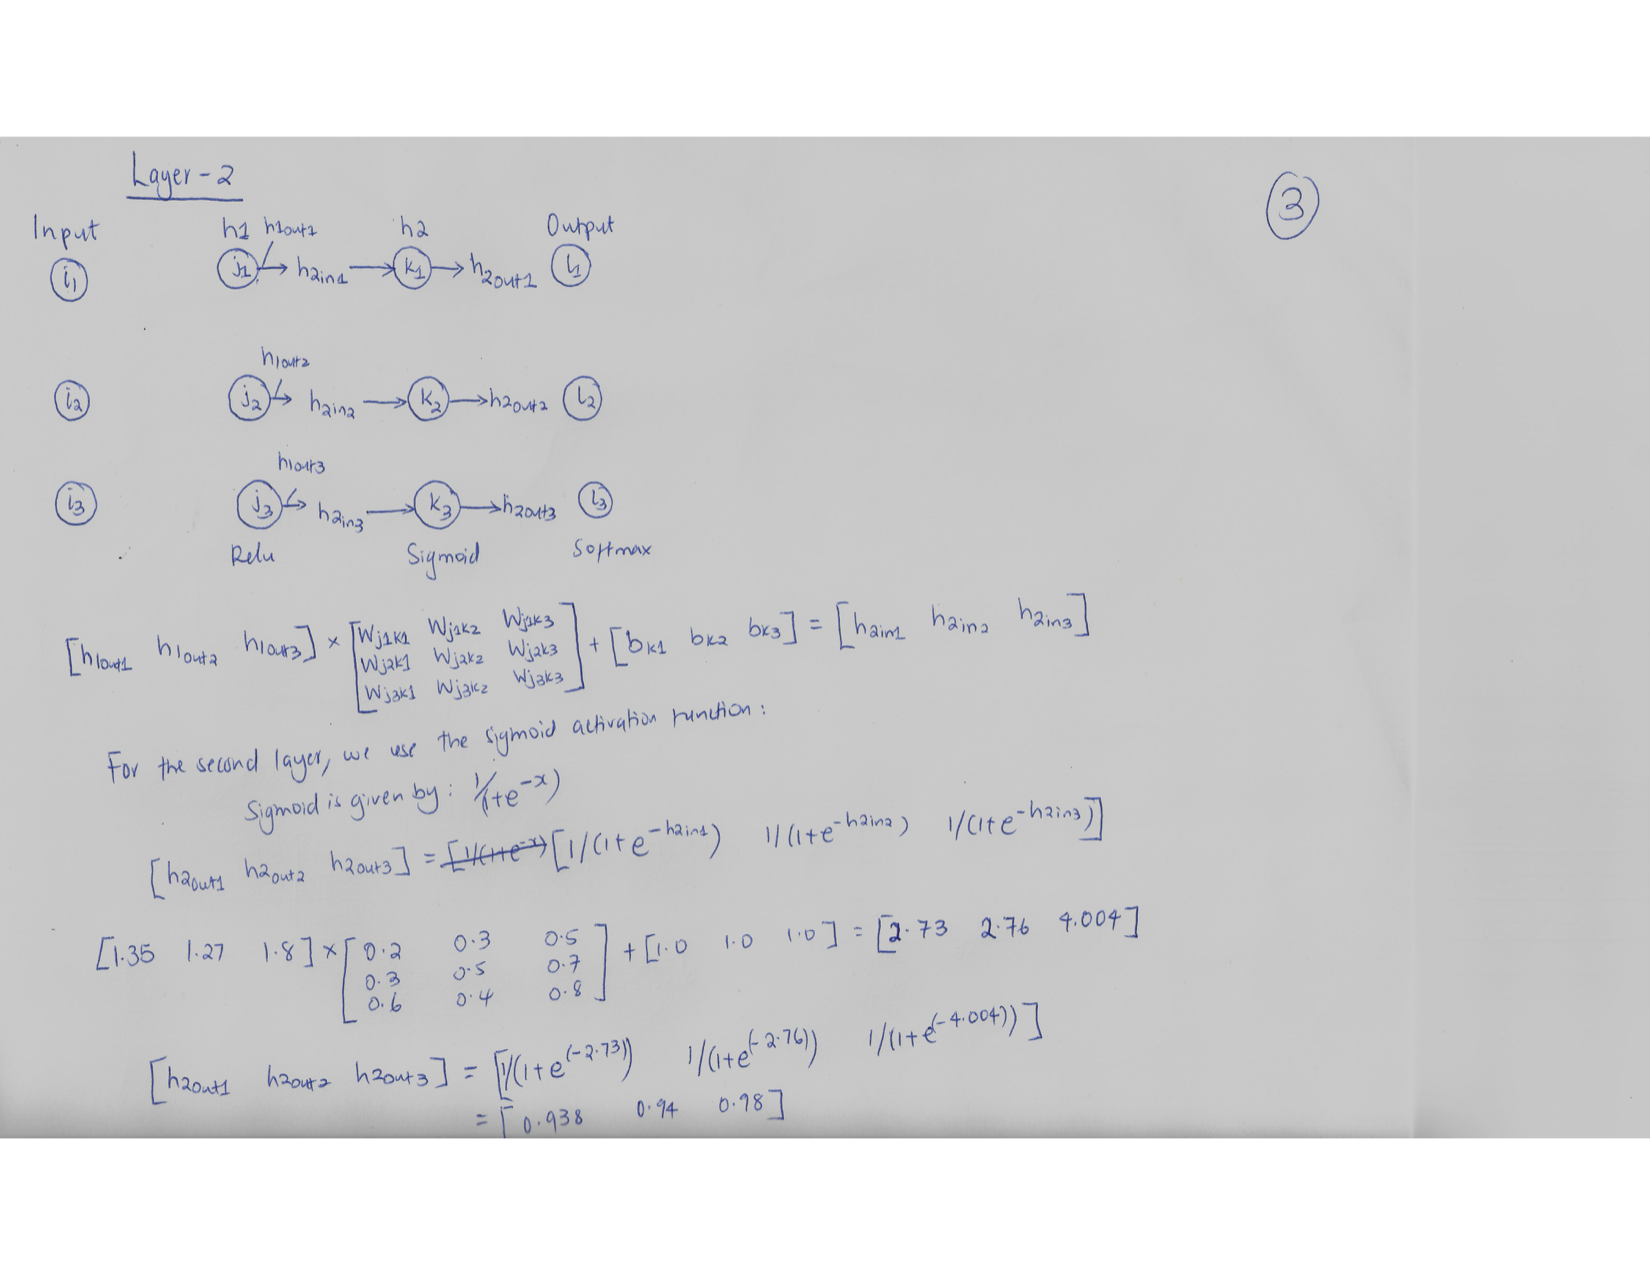 Layer - 2
3
Input h1 h1out1 h2 Output
i1 j1 h2in1 k1 h2out1 l1
h1out2
i2 j2 h2in2 k2 h2out2 l2
h1out3
i3 j3 h2in3 k3 h2out3 l3
Relu Sigmoid Softmax
[h1out1 h1out2 h1out3] × [Wj1k1 Wj1k2 Wj1k3 + [bk1 bk2 bk3] = [h2in1 h2in2 h2in3]
Wj2k1 Wj2k2 Wj2k3
Wj3k1 Wj3k2 Wj3k3]
For the second layer, we use the sigmoid activation function:
Sigmoid is given by: 1/(1+e^-x)
[h2out1 h2out2 h2out3] = [1/(1+e^-x) [1/(1+e^-h2in1) 1/(1+e^-h2in2) 1/(1+e^-h2in3)]
[1.35 1.27 1.8] × [0.2 0.3 0.5 + [1.0 1.0 1.0] = [2.73 2.76 4.004]
0.3 0.5 0.7
0.6 0.4 0.8]
[h2out1 h2out2 h2out3] = [1/(1+e^(-2.73)) 1/(1+e^(-2.76)) 1/(1+e^(-4.004))]
= [0.938 0.94 0.98]